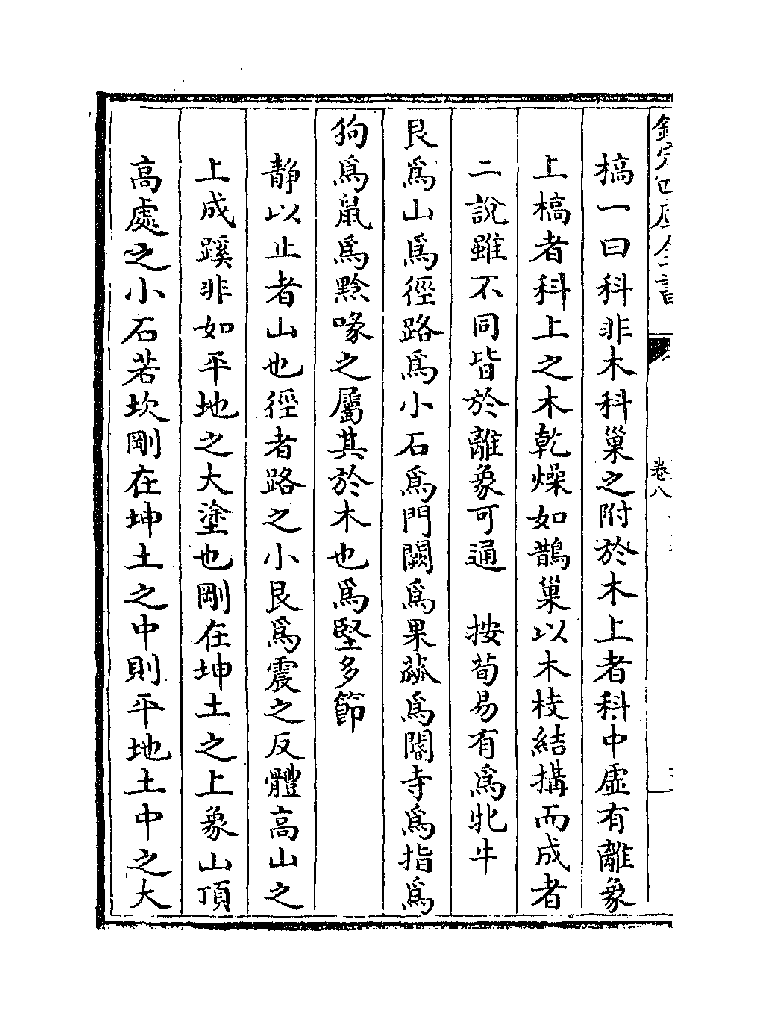 欽定四庫全書
卷八
搞一曰科非木科巢之附於木上者科中虛有離象
上槁者科上之木乾燥如鵲巢以木枝結搆而成者
二說雖不同皆於離象可通　按荀易有為牝牛
艮為山為徑路為小石為門闕為果蓏為閽寺為指為
狗為鼠為黔喙之屬其於木也為堅多節
靜以止者山也徑者路之小艮為震之反體高山之
上成蹊非如平地之大塗也剛在坤土之上象山頂
高處之小石若坎剛在坤土之中則平地土中之大